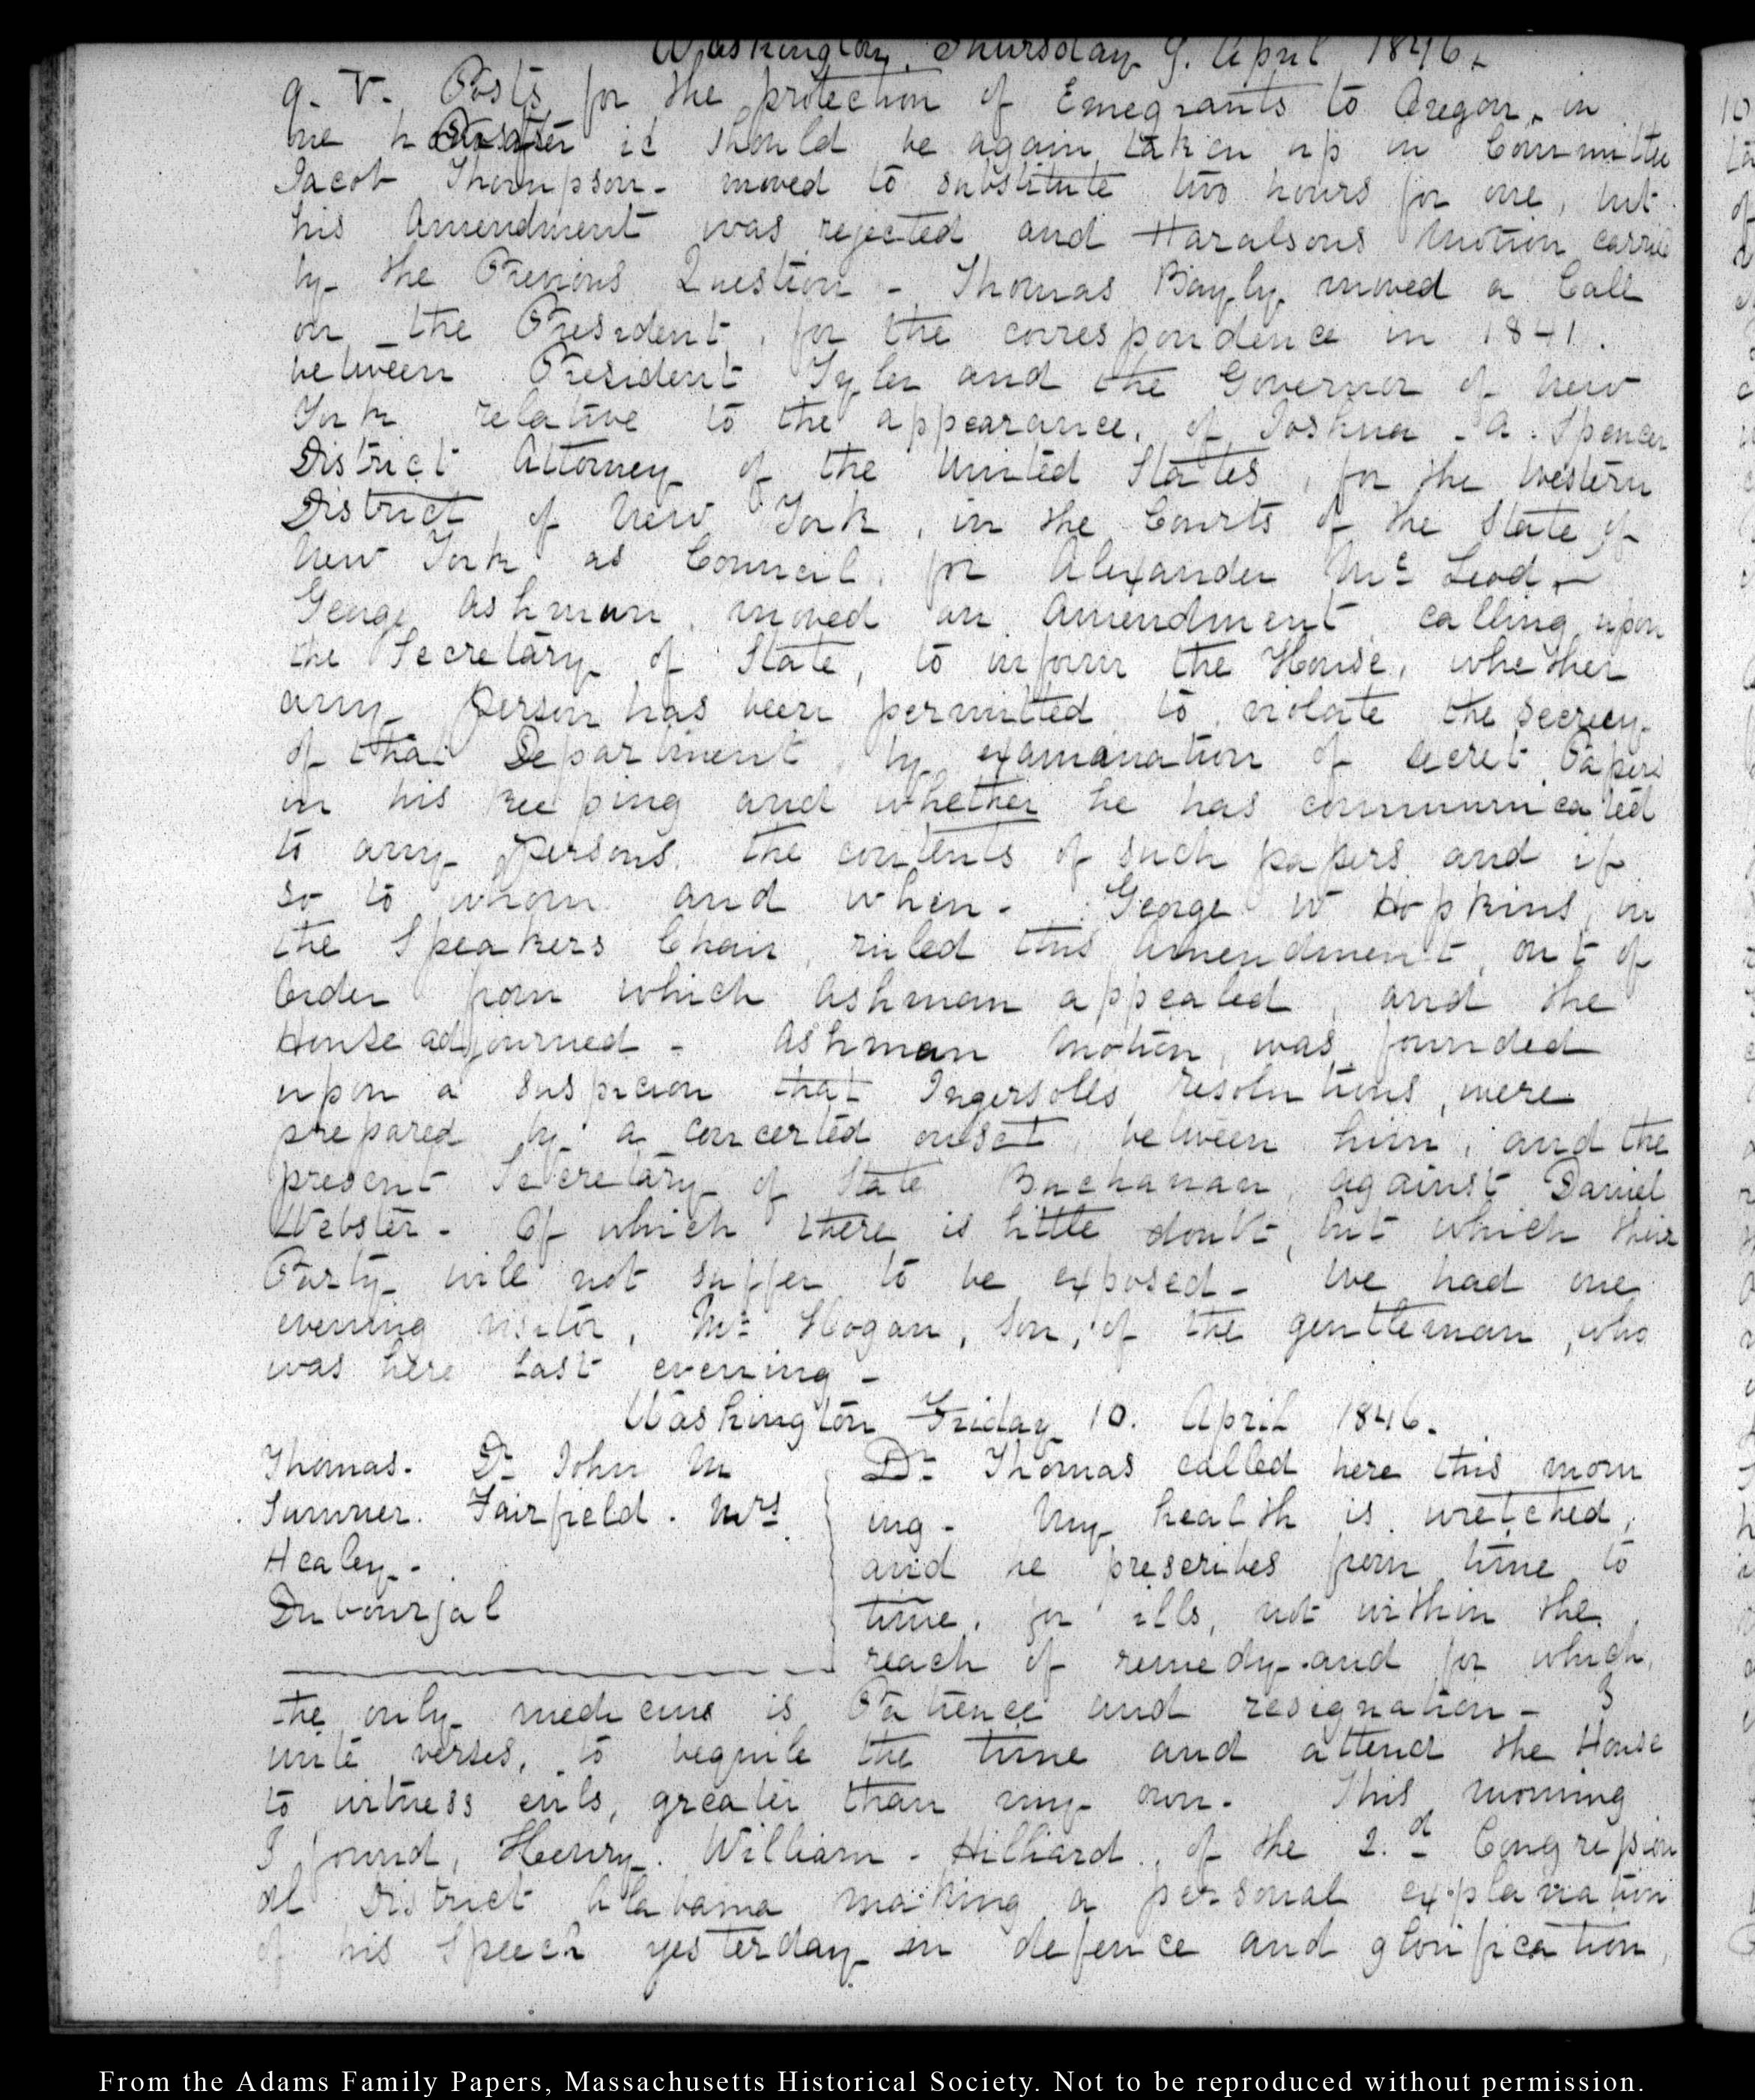 Washington, Thursday 9. April 1846.
9. V. Posts for the protection of Emegrants to Oregon, in
one hour after it should be again taken up in Committee
Jacob Thompson - moved to substitute two hours for one, but
his Amendment was rejected and Haralsons Motion carried
by the Previous Question - Thomas Bayly moved a Call
on the President, for the correspondence in 1841.
between President Tyler and the Governor of New
York relative to the appearance, of Joshua - A. Spencer
District Attorney of the United States, for the Western
District of New York, in the Courts of the State of
New York as Council, for Alexander Mc Leod -
George Ashmun moved an Amendment calling upon
the Secretary of State, to inform the House, whether
any person has been permitted to violate the secrecy
of that Department, by examanation of secret Papers
in his keeping and whether he has communicated
to any persons, the contents of such papers and if
so to whom and when - George W Hopkins, in
the Speakers Chair, ruled this Amendment, out of
Order from which Ashman appealed, and the
House adjourned - Ashman motion, was founded
upon a suspicion that Ingersolls resolutions, were
prepared by a concerted onset, between him, and the
present Secretary of State Buchanan, against Daniel
Webster - Of which there is little doubt, but which their
Party will not suffer to be exposed - We had one
evening visitor, Mr Hogan, son, of the gentleman, who
was here last evening -
Washington Friday 10. April 1846.
Thomas. Dr John M
Sumner. Fairfield. Mrs
Healey -
Dubourjal
Dr Thomas called here this morn
ing - My health is wretched,
and he prescribes from time to
time, for ills, not within the
reach of remedy - and for which,
the only medicine is Patience and resignation - I
write verses, to beguile the time and attend the House
to witness evils, greater than my own. This morning
I found, Henry. William - Hilliard, of the 2.d Congression
al District Alabama making a personal explanation
of his Speech yesterday in defence and glorification,
From the Adams Family Papers, Massachusetts Historical Society. Not to be reproduced without permission.